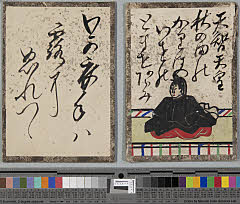 天智天皇
秋の田の
かりほの
いほの
とまをあらみ
わか衣手ハ
露に
ぬれつゝ